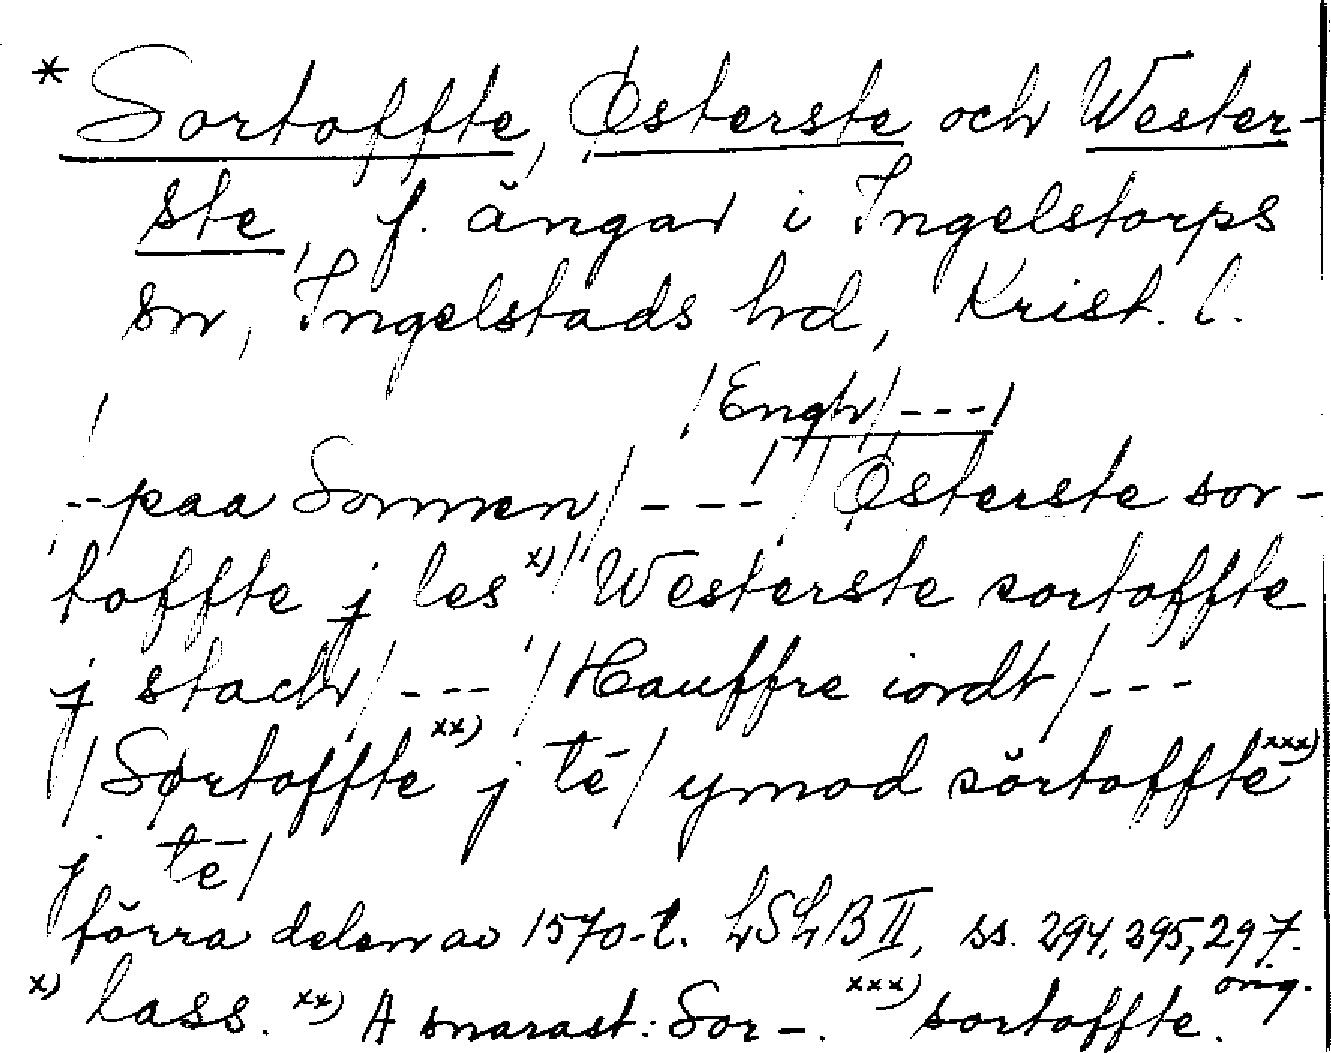 * Sortoffte, Østerste och Wester-
ste, f. ängar i Ingelstorps
sn, Ingelstads hd, Krist. l.
/Engh/ ---/
/--paa Sonnen/ ---/ Østerste sor-
toffte j les x)/ Westerste sortoffte
j stach/ --- / Hauffre iordt/ ---
/Sørtoffte xx) j te/ ymod sörtoffte xxx)
j te/
förra delen av 1570-t. LSLB II, ss. 294, 295, 297. orig.
x) lass. xx) A snarast: Sor-. xxx) sortoffte.